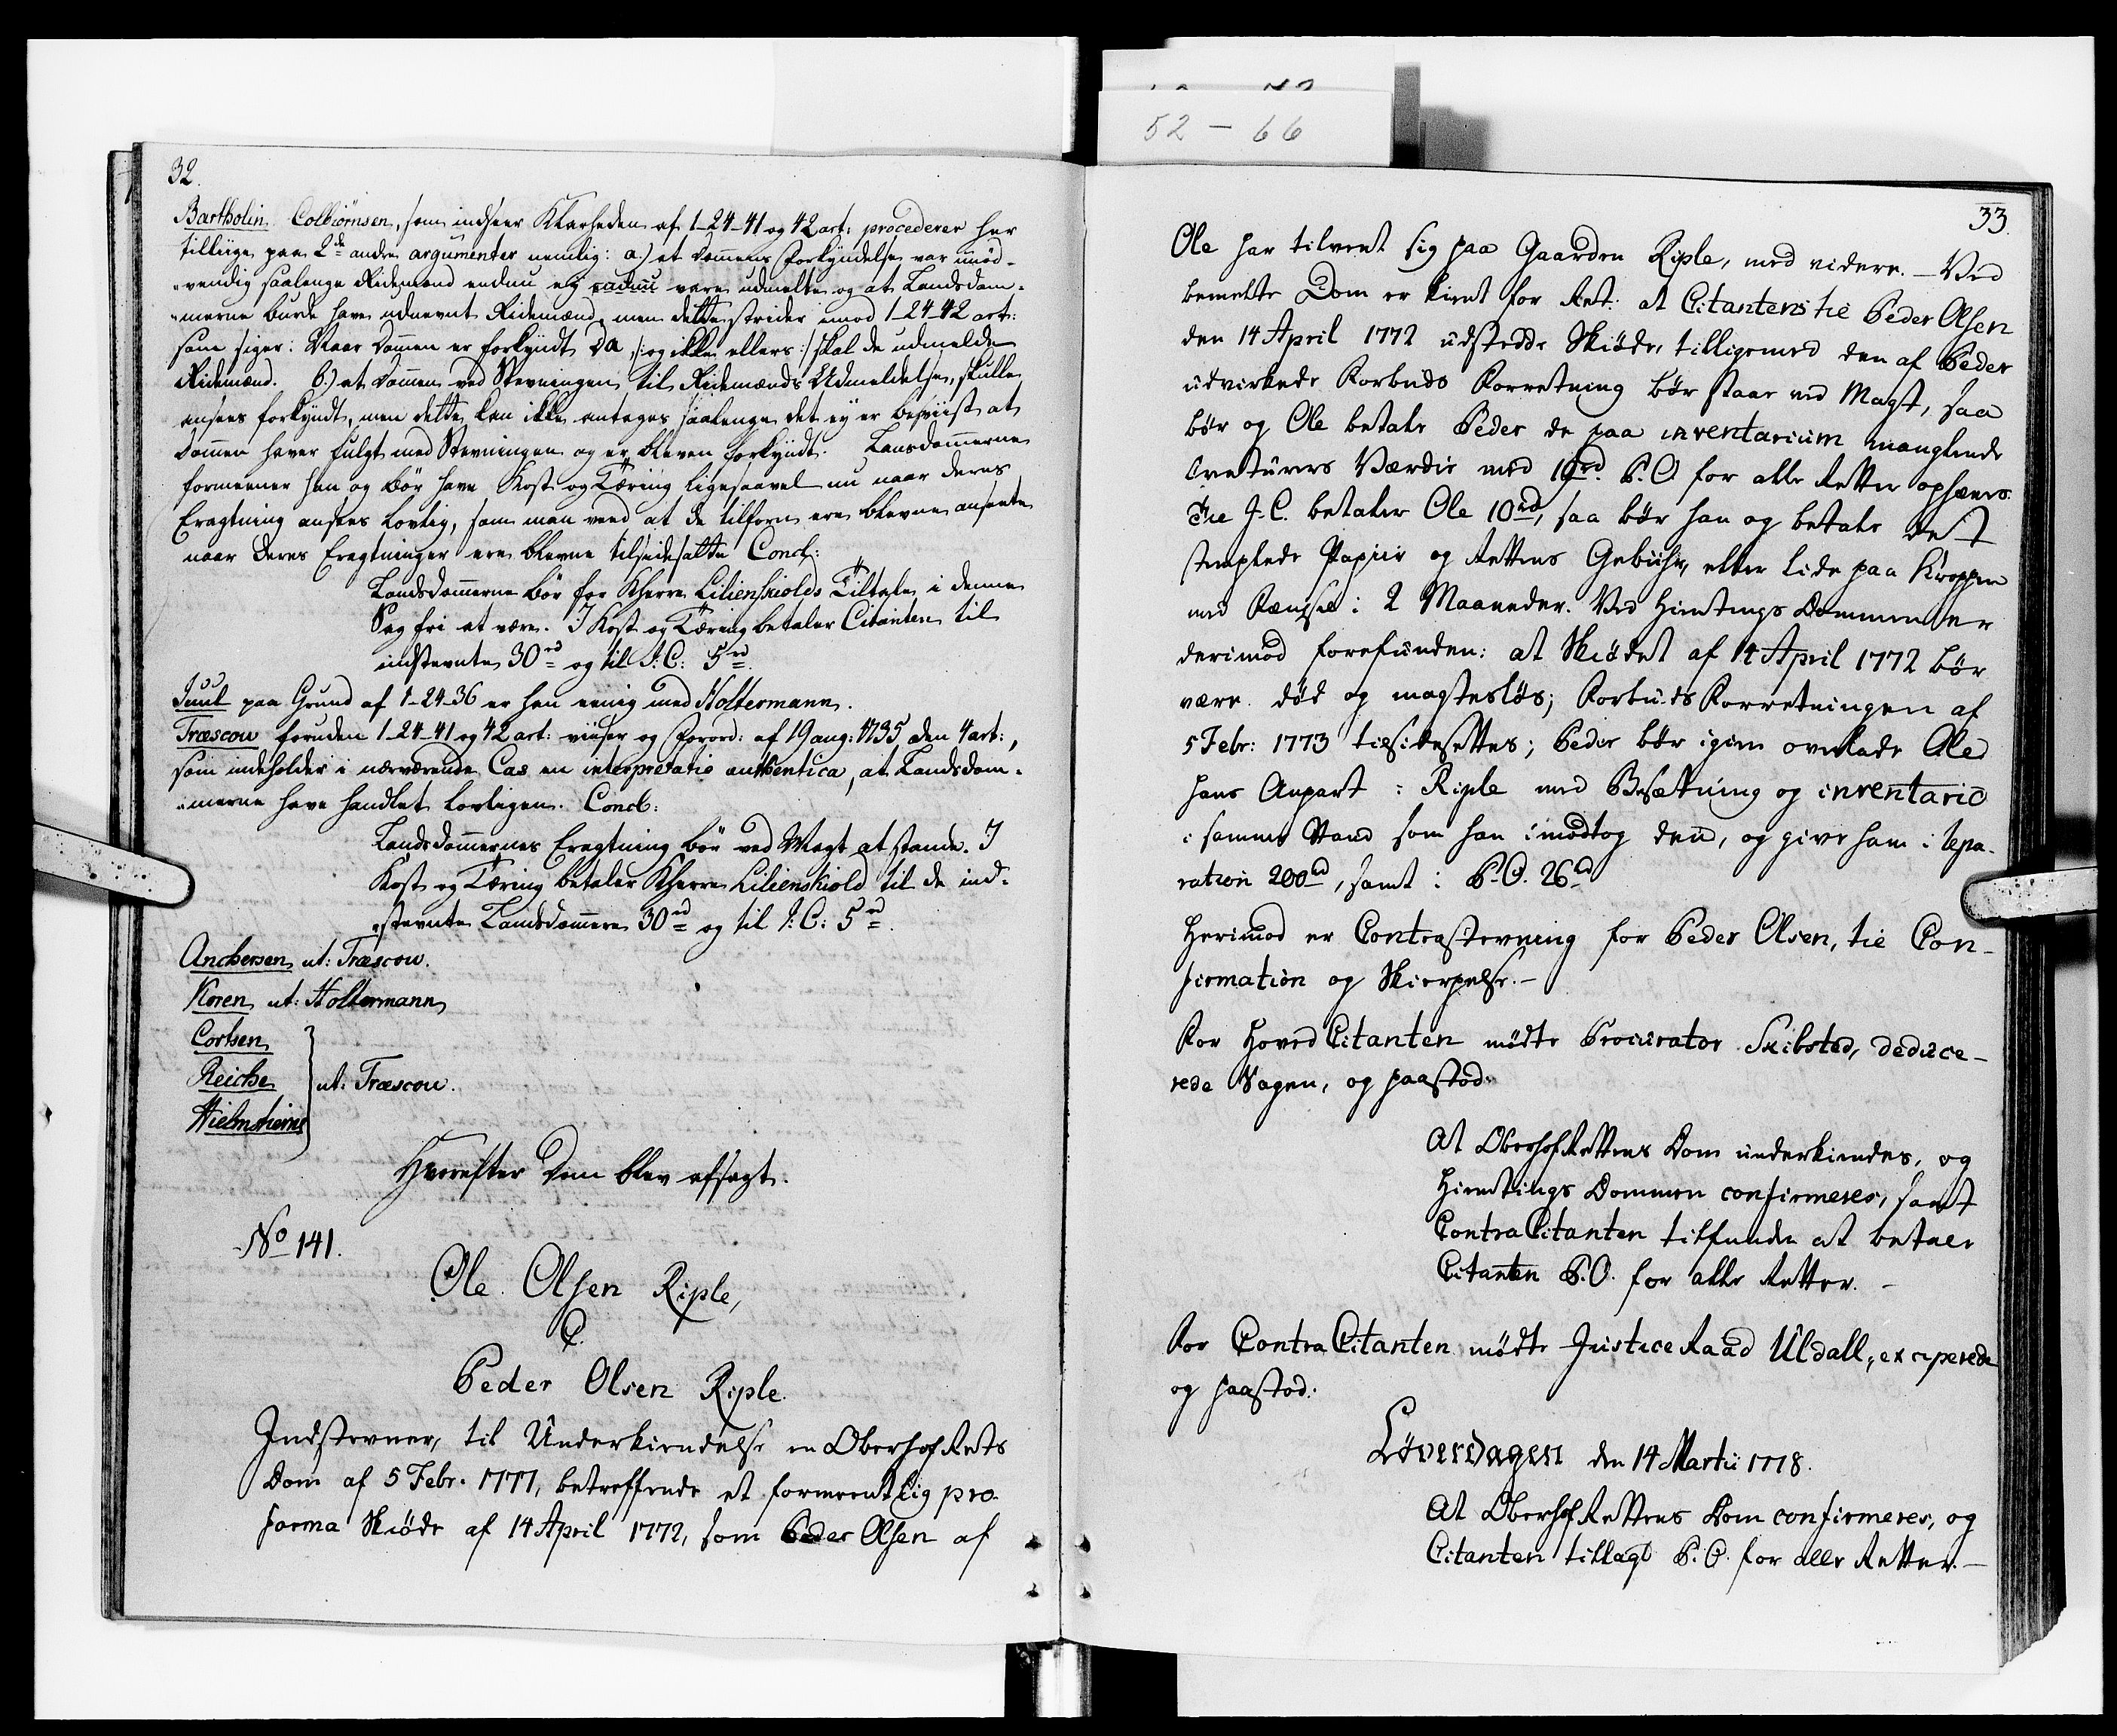 52 - 66
32.
Bartholin. Colbiørnsen, som indseer Klarheden af 1-24-41 og 42 art: procederer her
tillige paa 2de andre argumenter nemlig: a.) at Dom̄ens Forkyndelse var unød-
vendig saalenge Ridemænd endnu ej vare udmelte og at Landsdom-
merne burde have udnevnt Ridemænd, men dette strider imod 1-24-42 art:
som siger: Naar Dom̄en er forkyndt Da /: og ikke ellers :/ skal de udmelde
Ridemænd. b.) at Dom̄en ved Stevningen til Ridemænds Udmeldelse, skulle
ansees forkyndt, men dette kan ikke antages saalenge det ey er beviist at
Dom̄en haver fulgt med Stevningen og er bleven forkyndt. Landsdom̄erne
formeener han og bør have Kost og Tæring ligesaavel nu naar deres
Eragtning ansees lovlig, som man veed at de tilforn ere blevne ansette
naar deres Eragtninger ere blevne tilsidesatte Concl:
Landsdom̄erne bør for KHerre Lilienskiolds Tiltale i denne
Sag fri at være. I Kost og Tæring betaler Citanten til
indstevnte 30rd og til J: C: 5rd.
Juul paa Grund af 1-24-36 er han eenig med Holtermann.
Træscow foruden 1-24-41 og 42 art: viiser og Forord: af 19 aug: 1735 den 4 art:,
som indeholder i nærværende Cas en interpretatio authentica, at Landsdom-
merne have handlet lovligen. Concl:
Landsdom̄ernes Eragtning bør ved Magt at stande. I
Kost og Tæring betaler KHerre Lilienskiold til de ind-
stevnte Landsdom̄ere 30rd og til J: C: 5rd.
Anchersen ut: Træscow.
Koren ut: Holtermann
Cortsen
Reiche ut: Træscow.
Hielmstierne
Hvorefter Dom blev afsagt.
No 141.
Ole Olsen Riple,
C.
Peder Olsen Riple.
Indstevner, til Underkiendelse en OberhofRets
Dom af 5 Febr. 1777, betreffende et formeentlig pro
forma Skiøde af 14 April 1772, som Peder Olsen af
33.
Ole har tilvent sig paa Gaarden Riple, med videre. - Ved
bemelte Dom er kient for Ret: at Citantens til Peder Olsen
den 14 April 1772 udstedde Skiøde, tilligemed den af Peder
udvirkede Forbuds Forretning bør staae ved Magt, saa
bør og Ole betale Peder de paa inventarium manglende
Creaturers Værdie med 19rd. P.O for alle Retter ophæves.
Til J.C. betaler Ole 10rd, saa bør han og betale det
stemplede Papiir og Rettens Gebühr, eller lide paa Kroppen
med Fængsel i 2 Maaneder. Ved Hiemtings Dommen er
derimod forefunden: at Skiødet af 14 April 1772 bør
være død og magtesløs; Forbuds Forretningen af
5 Febr: 1773 tilsidesettes; Peder bør igien overlade Ole
hans Anpart i Riple med Besættning og inventario
i samme Stand som han imodtog den, og give ham i repa-
ration 200rd, samt i P.O. 26rd
Herimod er Contrastevning for Peder Olsen, til Con-
firmation og Skierpelse. -
For HovedCitanten mødte Procurator Skibsted, deduce-
rede Sagen, og paastod.
At OberhofRettens Dom underkiendes, og
Hiemtings Dommen confirmeres, samt
ContraCitanten tilfunden at betale
Citanten P.O. for alle Retter. -
For ContraCitanten mødte JusticeRaad Uldall, exciperede
og paastod:
Løverdagen den 14 Martii 1778.
At OberhofRettens Dom confirmeres, og
Citanten tillagt P.O. for alle Retter. -